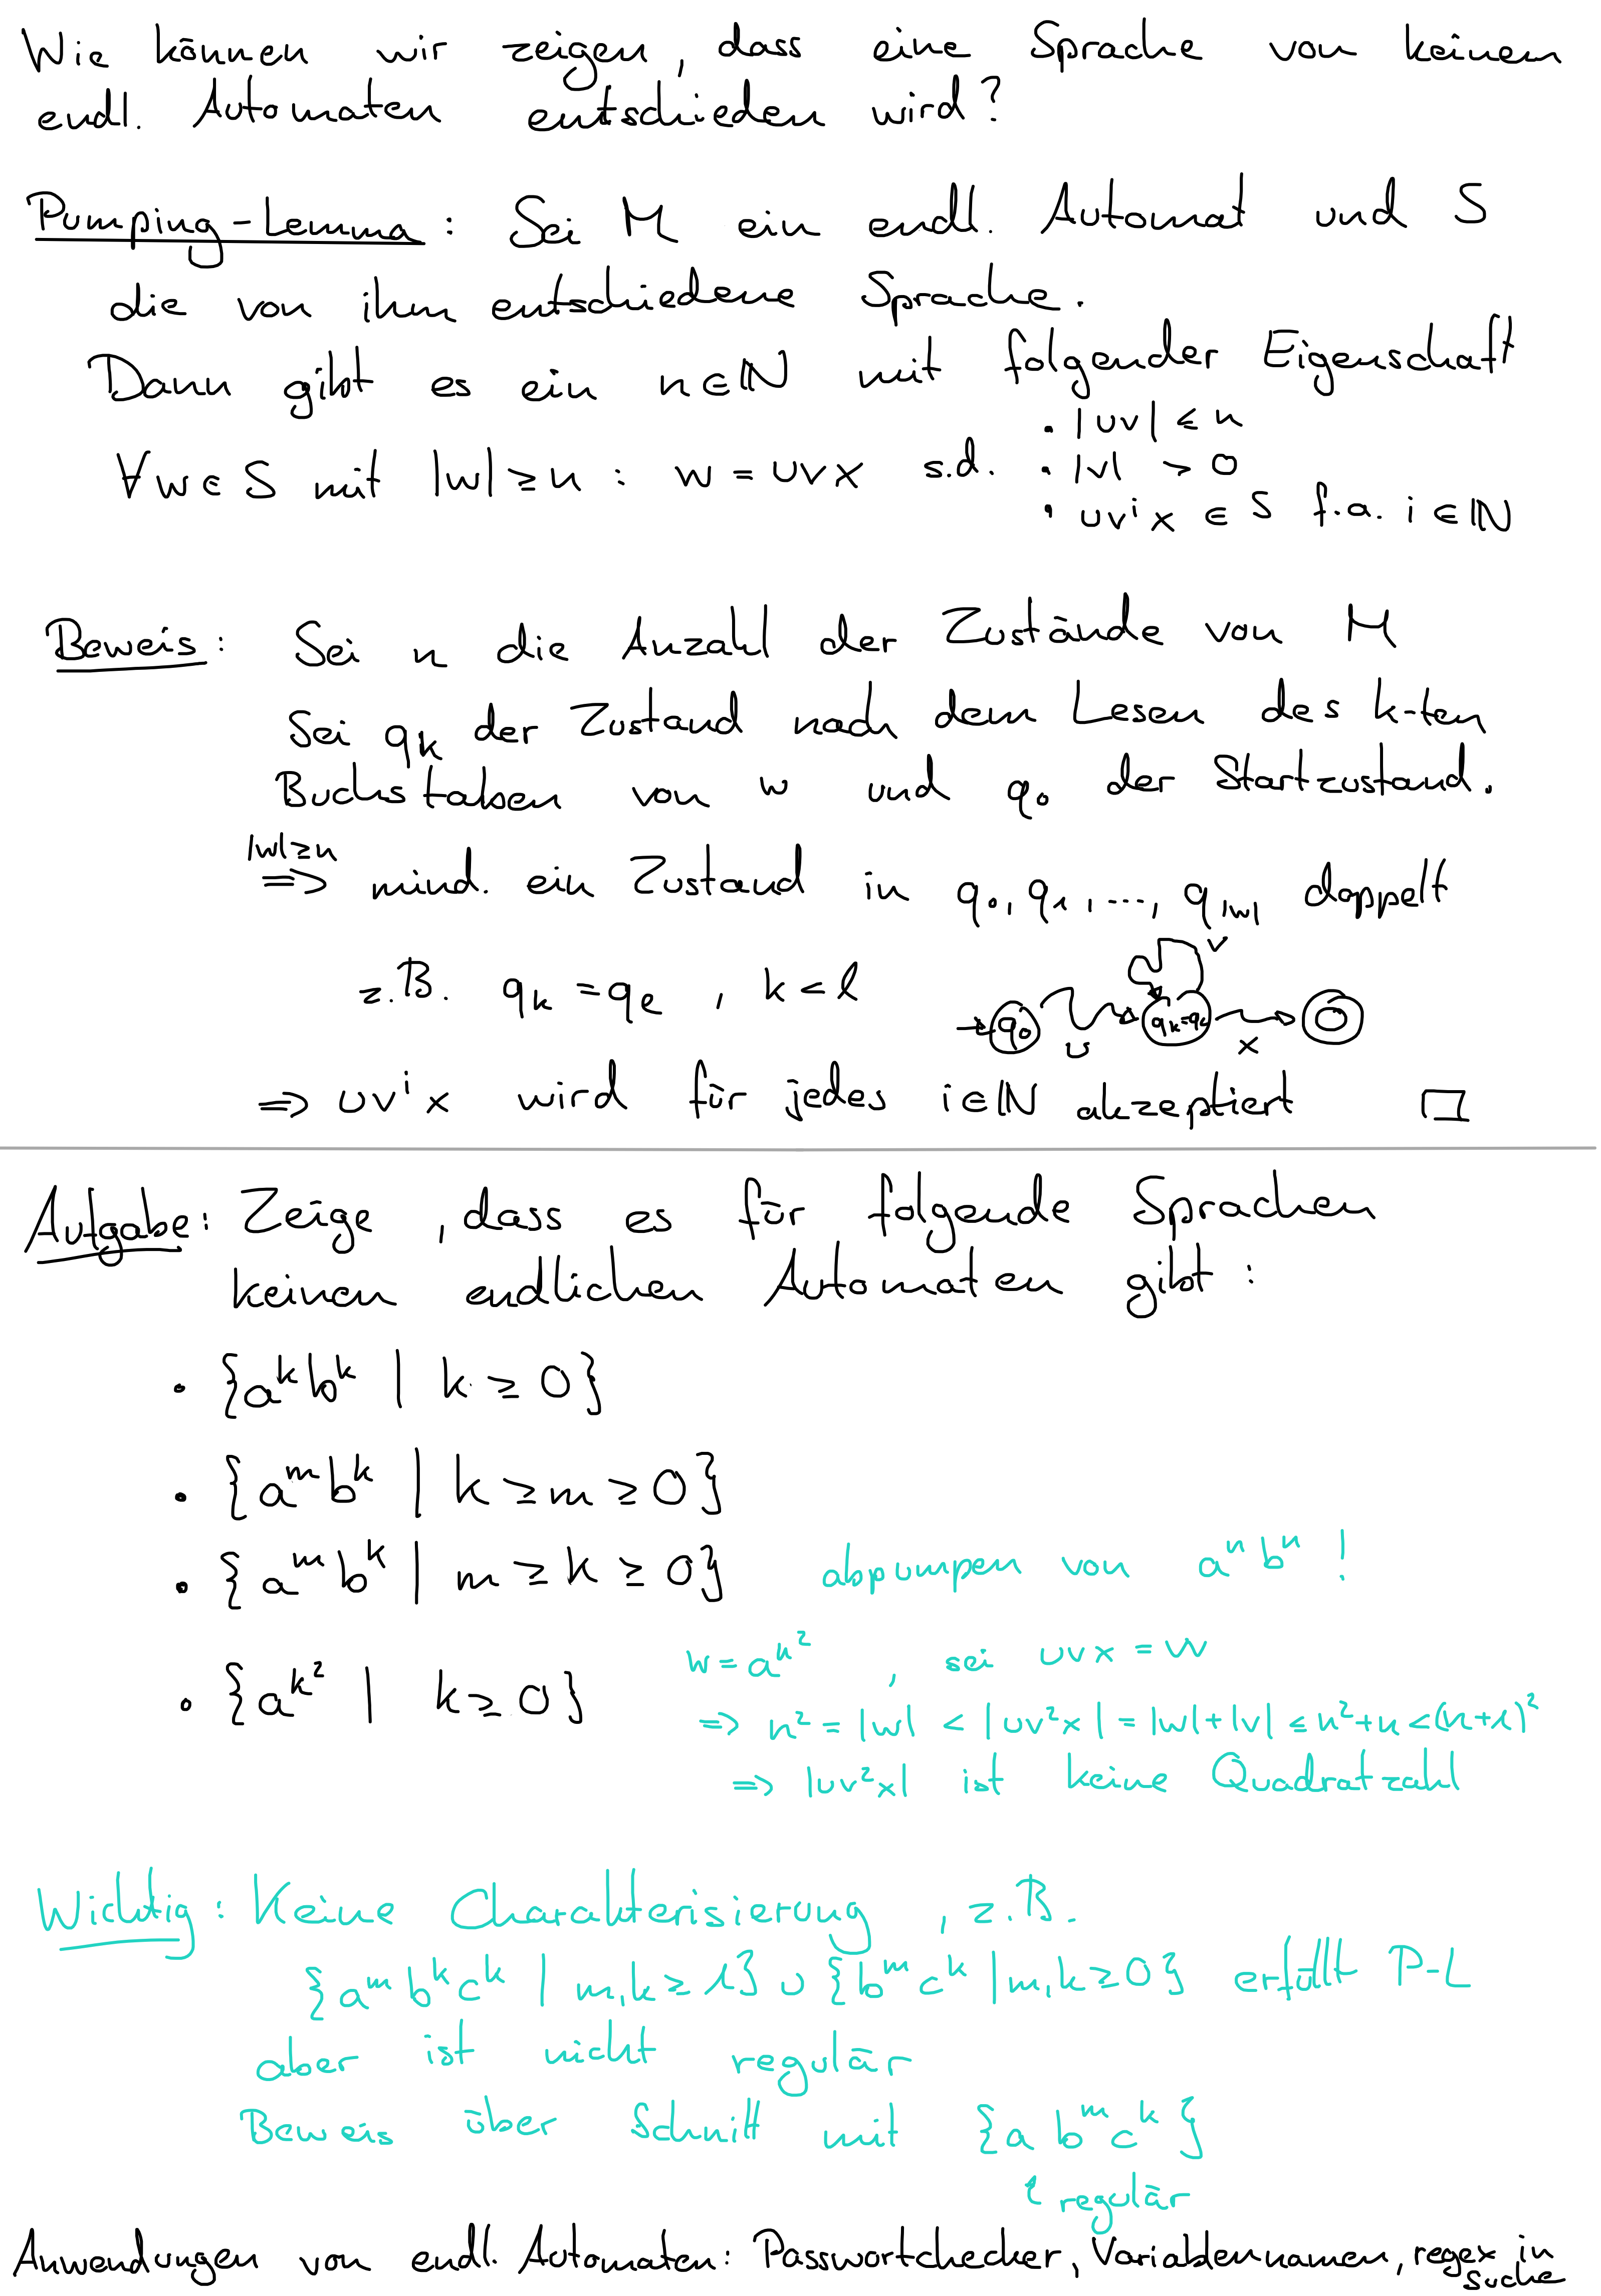 Wie können wir zeigen, dass eine Sprache von keinem
endl. Automaten entschieden wird?
Pumping-Lemma: Sei M ein endl. Automat und S
die von ihm entschiedene Sprache.
Dann gibt es ein n∈ℕ mit folgender Eigenschaft
∀w∈S mit |w|≥n : w=uvx s.d.
• |uv| ≤ n
• |v| > 0
• uvⁱx ∈ S f.a. i∈ℕ
Beweis: Sei n die Anzahl der Zustände von M
Sei qₖ der Zustand nach dem Lesen des k-ten
Buchstaben von w und q₀ der Startzustand.
|w|≥n
⇒ mind. ein Zustand in q₀, q₁, ..., q_|w| doppelt
z.B. qₖ = qₑ , k < l
v
q₀ qₖ=qₑ
u x
⇒ uvⁱx wird für jedes i∈ℕ akzeptiert □
Aufgabe: Zeige, dass es für folgende Sprachen
keinen endlichen Automaten gibt:
• {aᵏbᵏ | k ≥ 0}
• {aᵐbᵏ | k ≥ m ≥ 0}
• {aᵐbᵏ | m ≥ k ≥ 0} abpumpen von aⁿbⁿ !
• {a^k² | k ≥ 0} w = a^n² , sei uvx = w
⇒ n² = |w| < |uv²x| = |w|+|v| ≤ n²+n < (n+1)²
⇒ |uv²x| ist keine Quadratzahl
Wichtig: Keine Charakterisierung, z.B.
{aᵐbᵏcᵏ | m,k ≥ 1} ∪ {bᵐcᵏ | m,k ≥ 0} erfüllt P-L
aber ist nicht regulär
Beweis über Schnitt mit {a bᵐcᵏ}
regulär
Anwendungen von endl. Automaten: Passwortchecker, Variablennamen, regex in
suche